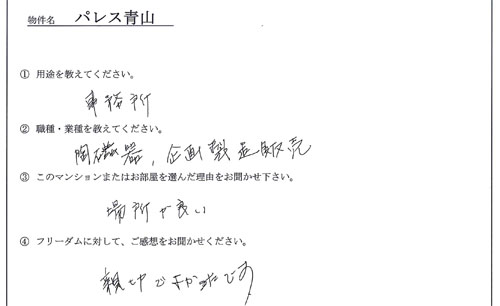 物件名 パレス青山
① 用途を教えてください。
事務所
② 職種・業種を教えてください。
陶磁器，企画製造販売
③ このマンションまたはお部屋を選んだ理由をお聞かせ下さい。
場所が良い
④ フリーダムに対して、ご感想をお聞かせください。
親切でよかったです